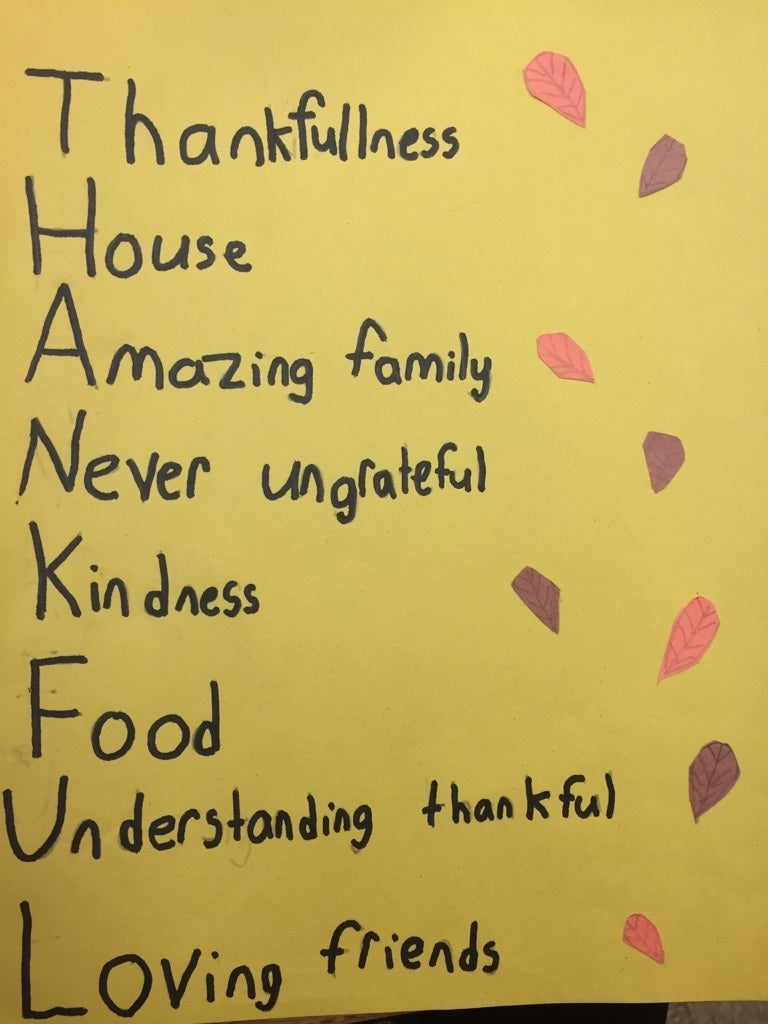 Thankfullness
House
Amazing family
Never ungrateful
Kindness
Food
Understanding thankful
Loving friends